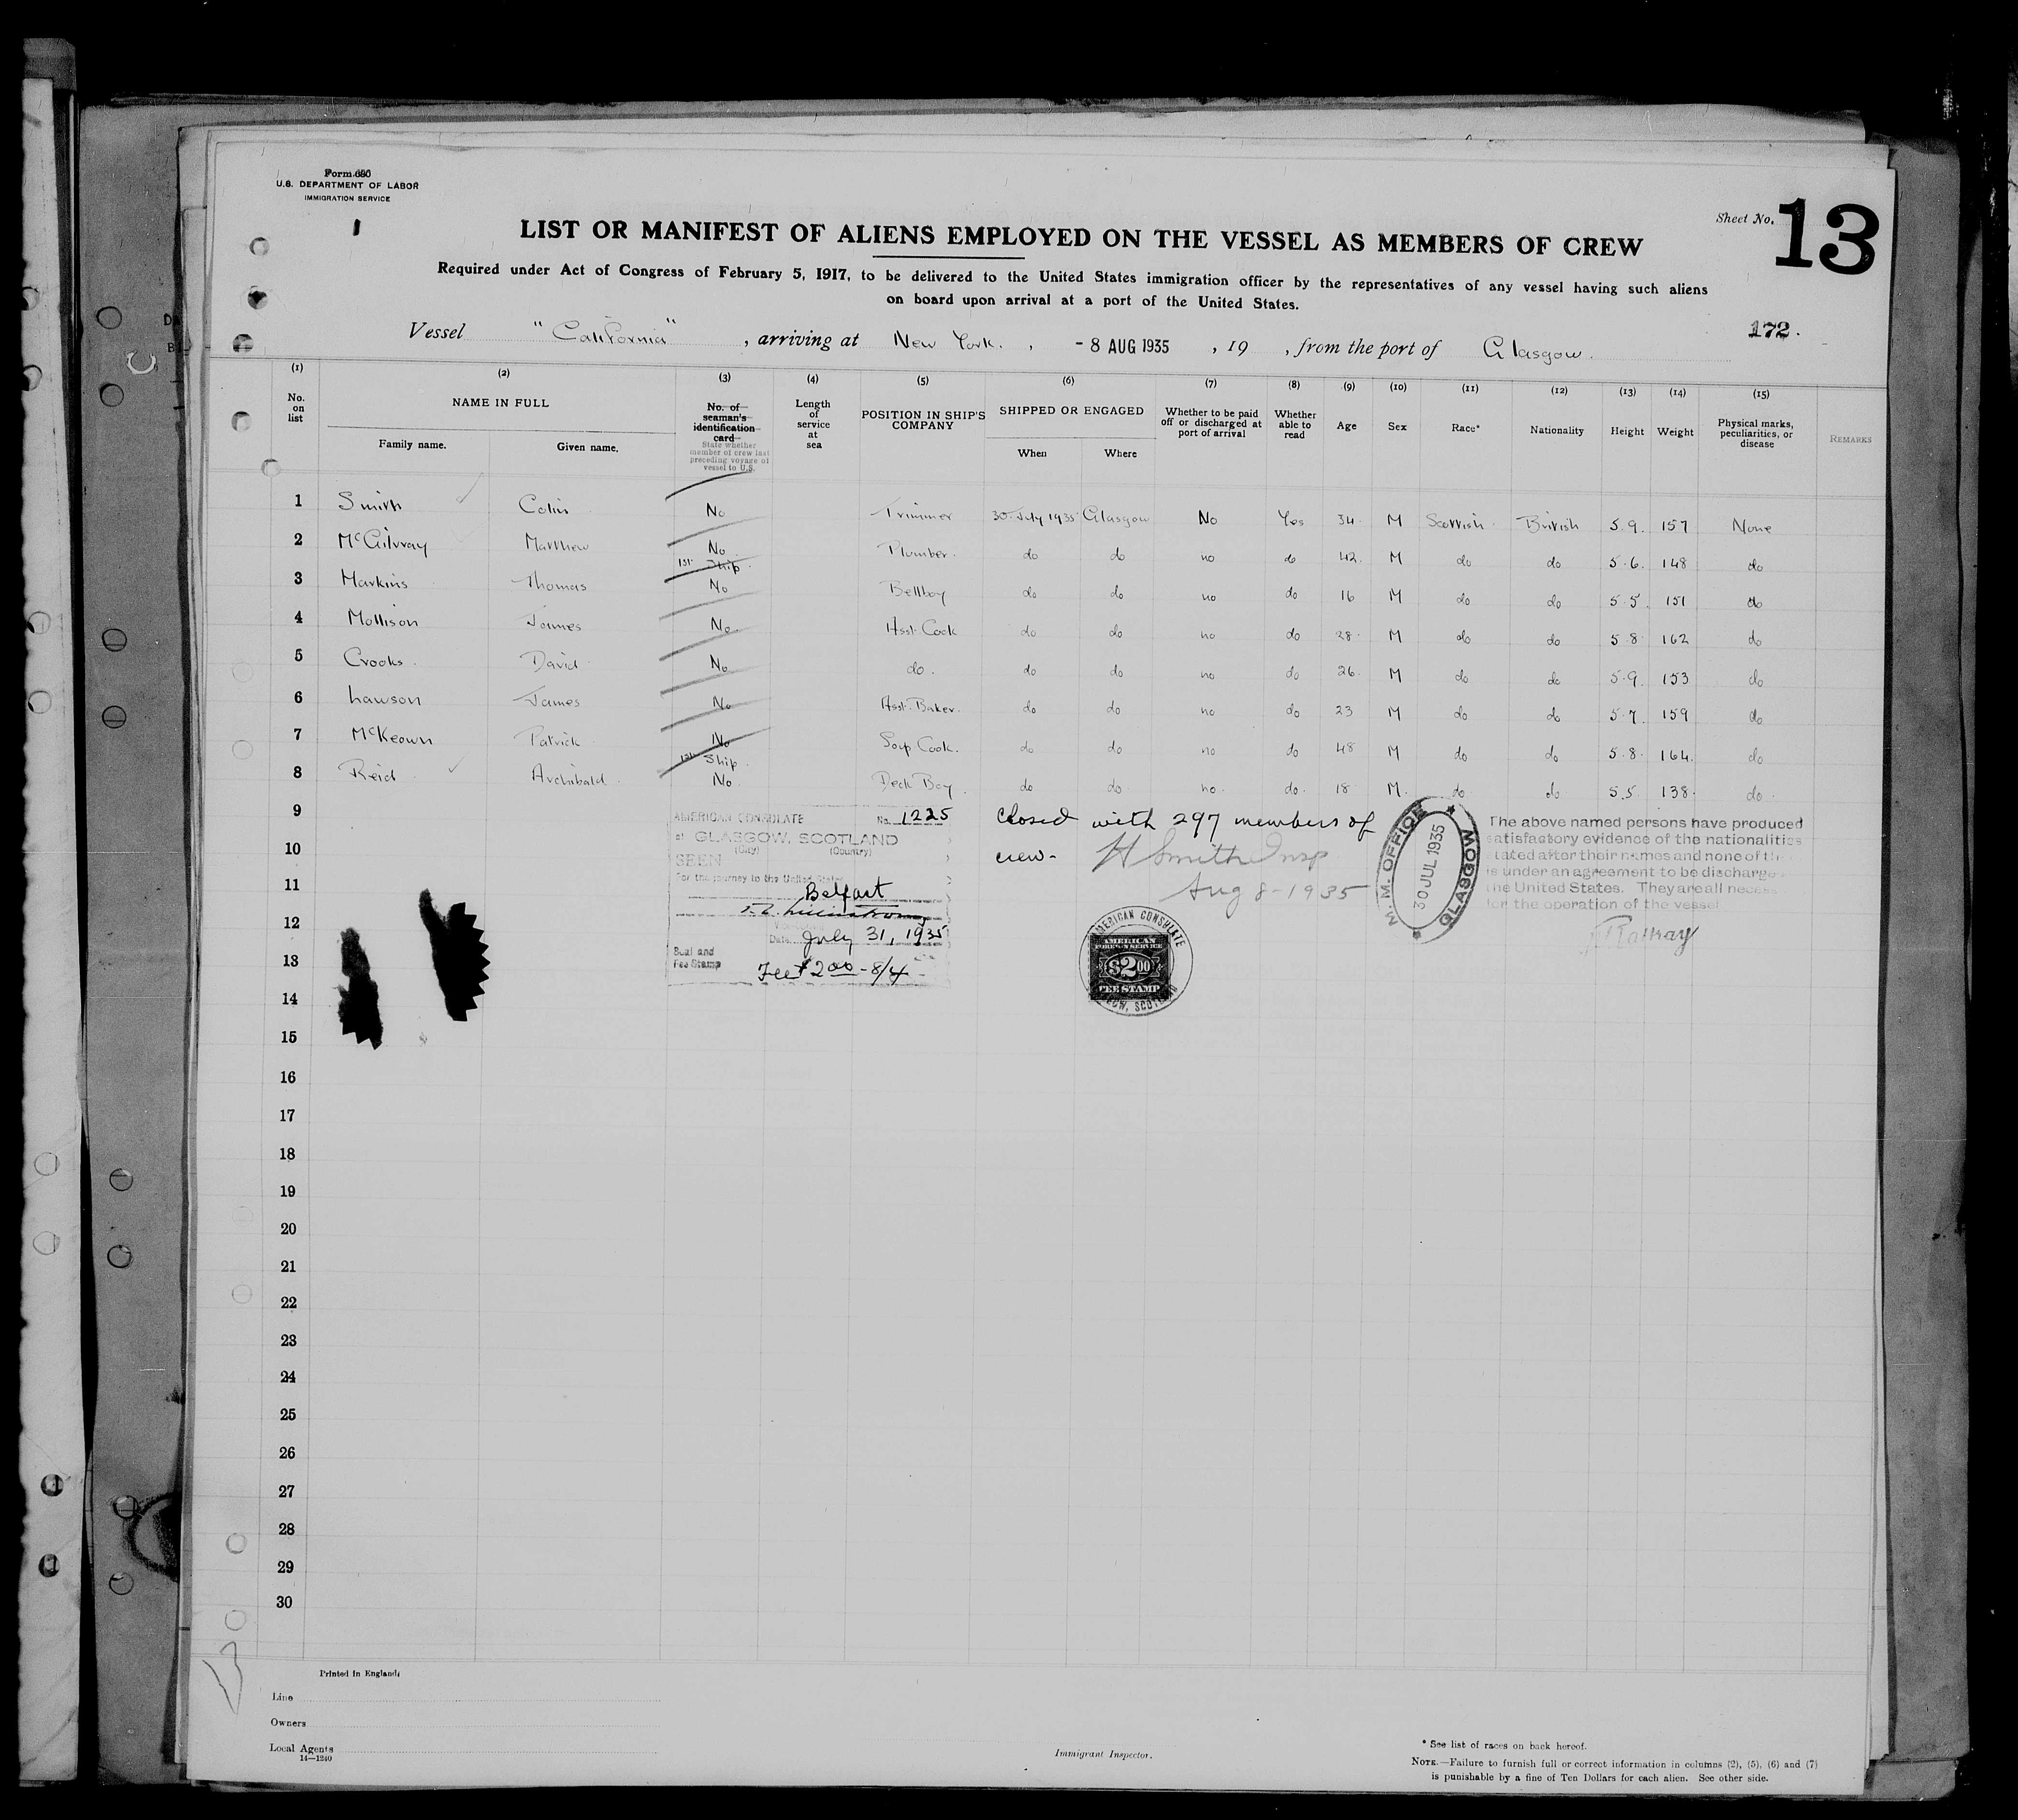 Form 680
U.S. DEPARTMENT OF LABOR
IMMIGRATION SERVICE
1
Sheet No. 13
LIST OR MANIFEST OF ALIENS EMPLOYED ON THE VESSEL AS MEMBERS OF CREW
Required under Act of Congress of February 5, 1917, to be delivered to the United States immigration officer by the representatives of any vessel having such aliens
on board upon arrival at a port of the United States.
172.
Vessel "California", arriving at New York. , - 8 AUG 1935 , 19 , from the port of Glasgow.
(1) (2) (3) (4) (5) (6) (7) (8) (9) (10) (11) (12) (13) (14) (15)
No. on list NAME IN FULL Family name. Given name. No. of seaman's identification card State whether member of crew last preceding voyage of vessel to U.S. Length of service at sea POSITION IN SHIP'S COMPANY SHIPPED OR ENGAGED When Where Whether to be paid off or discharged at port of arrival Whether able to read Age Sex Race* Nationality Height Weight Physical marks, peculiarities, or disease REMARKS
1 Smith Colin No Trimmer 30 July 1935 Glasgow No Yes 34 M Scottish British 5.9. 157 None
2 McGilvray Matthew No Plumber. do do no do 42. M do do 5.6. 148 do
1st Ship.
3 Harkins Thomas No Bellboy do do no do 16 M do do 5.5. 151 do
4 Mollison James No. Asst. Cook do do no do 28. M do do 5.8 162 do
5 Crooks. David No do. do do no do 26. M do do 5.9. 153 do
6 Lawson James No Asst. Baker. do do no do 23 M do do 5.7. 159 do
7 McKeown Patrick No Soup Cook. do do no do 48 M do do 5.8. 164. do
1st Ship.
8 Reid Archibald. No. Deck Boy. do do no. do. 18 M. do do 5.5 138. do.
9
10
11
12
13
14
15
16
17
18
19
20
21
22
23
24
25
26
27
28
29
30
AMERICAN CONSULATE No. 1225
at GLASGOW, SCOTLAND
(City) (Country)
SEEN
For the journey to the United States
Belfast
Date July 31, 1935
Seal and
Fee Stamp
Fee $2.00 - 8/4 -
closed with 297 members of
crew-
H Smith Insp
Aug 8-1935
AMERICAN CONSULATE
AMERICAN
FOREIGN SERVICE
$2.00
FEE STAMP
M. M. OFFICE
30 JUL 1935
GLASGOW
The above named persons have produced
satisfactory evidence of the nationalities
stated after their names and none of
is under an agreement to be discharge
the United States. They are all
for the operation of the vessel
Printed in England.
Line
Owners
Local Agents
14—1240
Immigrant Inspector.
* See list of races on back hereof.
NOTE.—Failure to furnish full or correct information in columns (2), (5), (6) and (7)
is punishable by a fine of Ten Dollars for each alien. See other side.